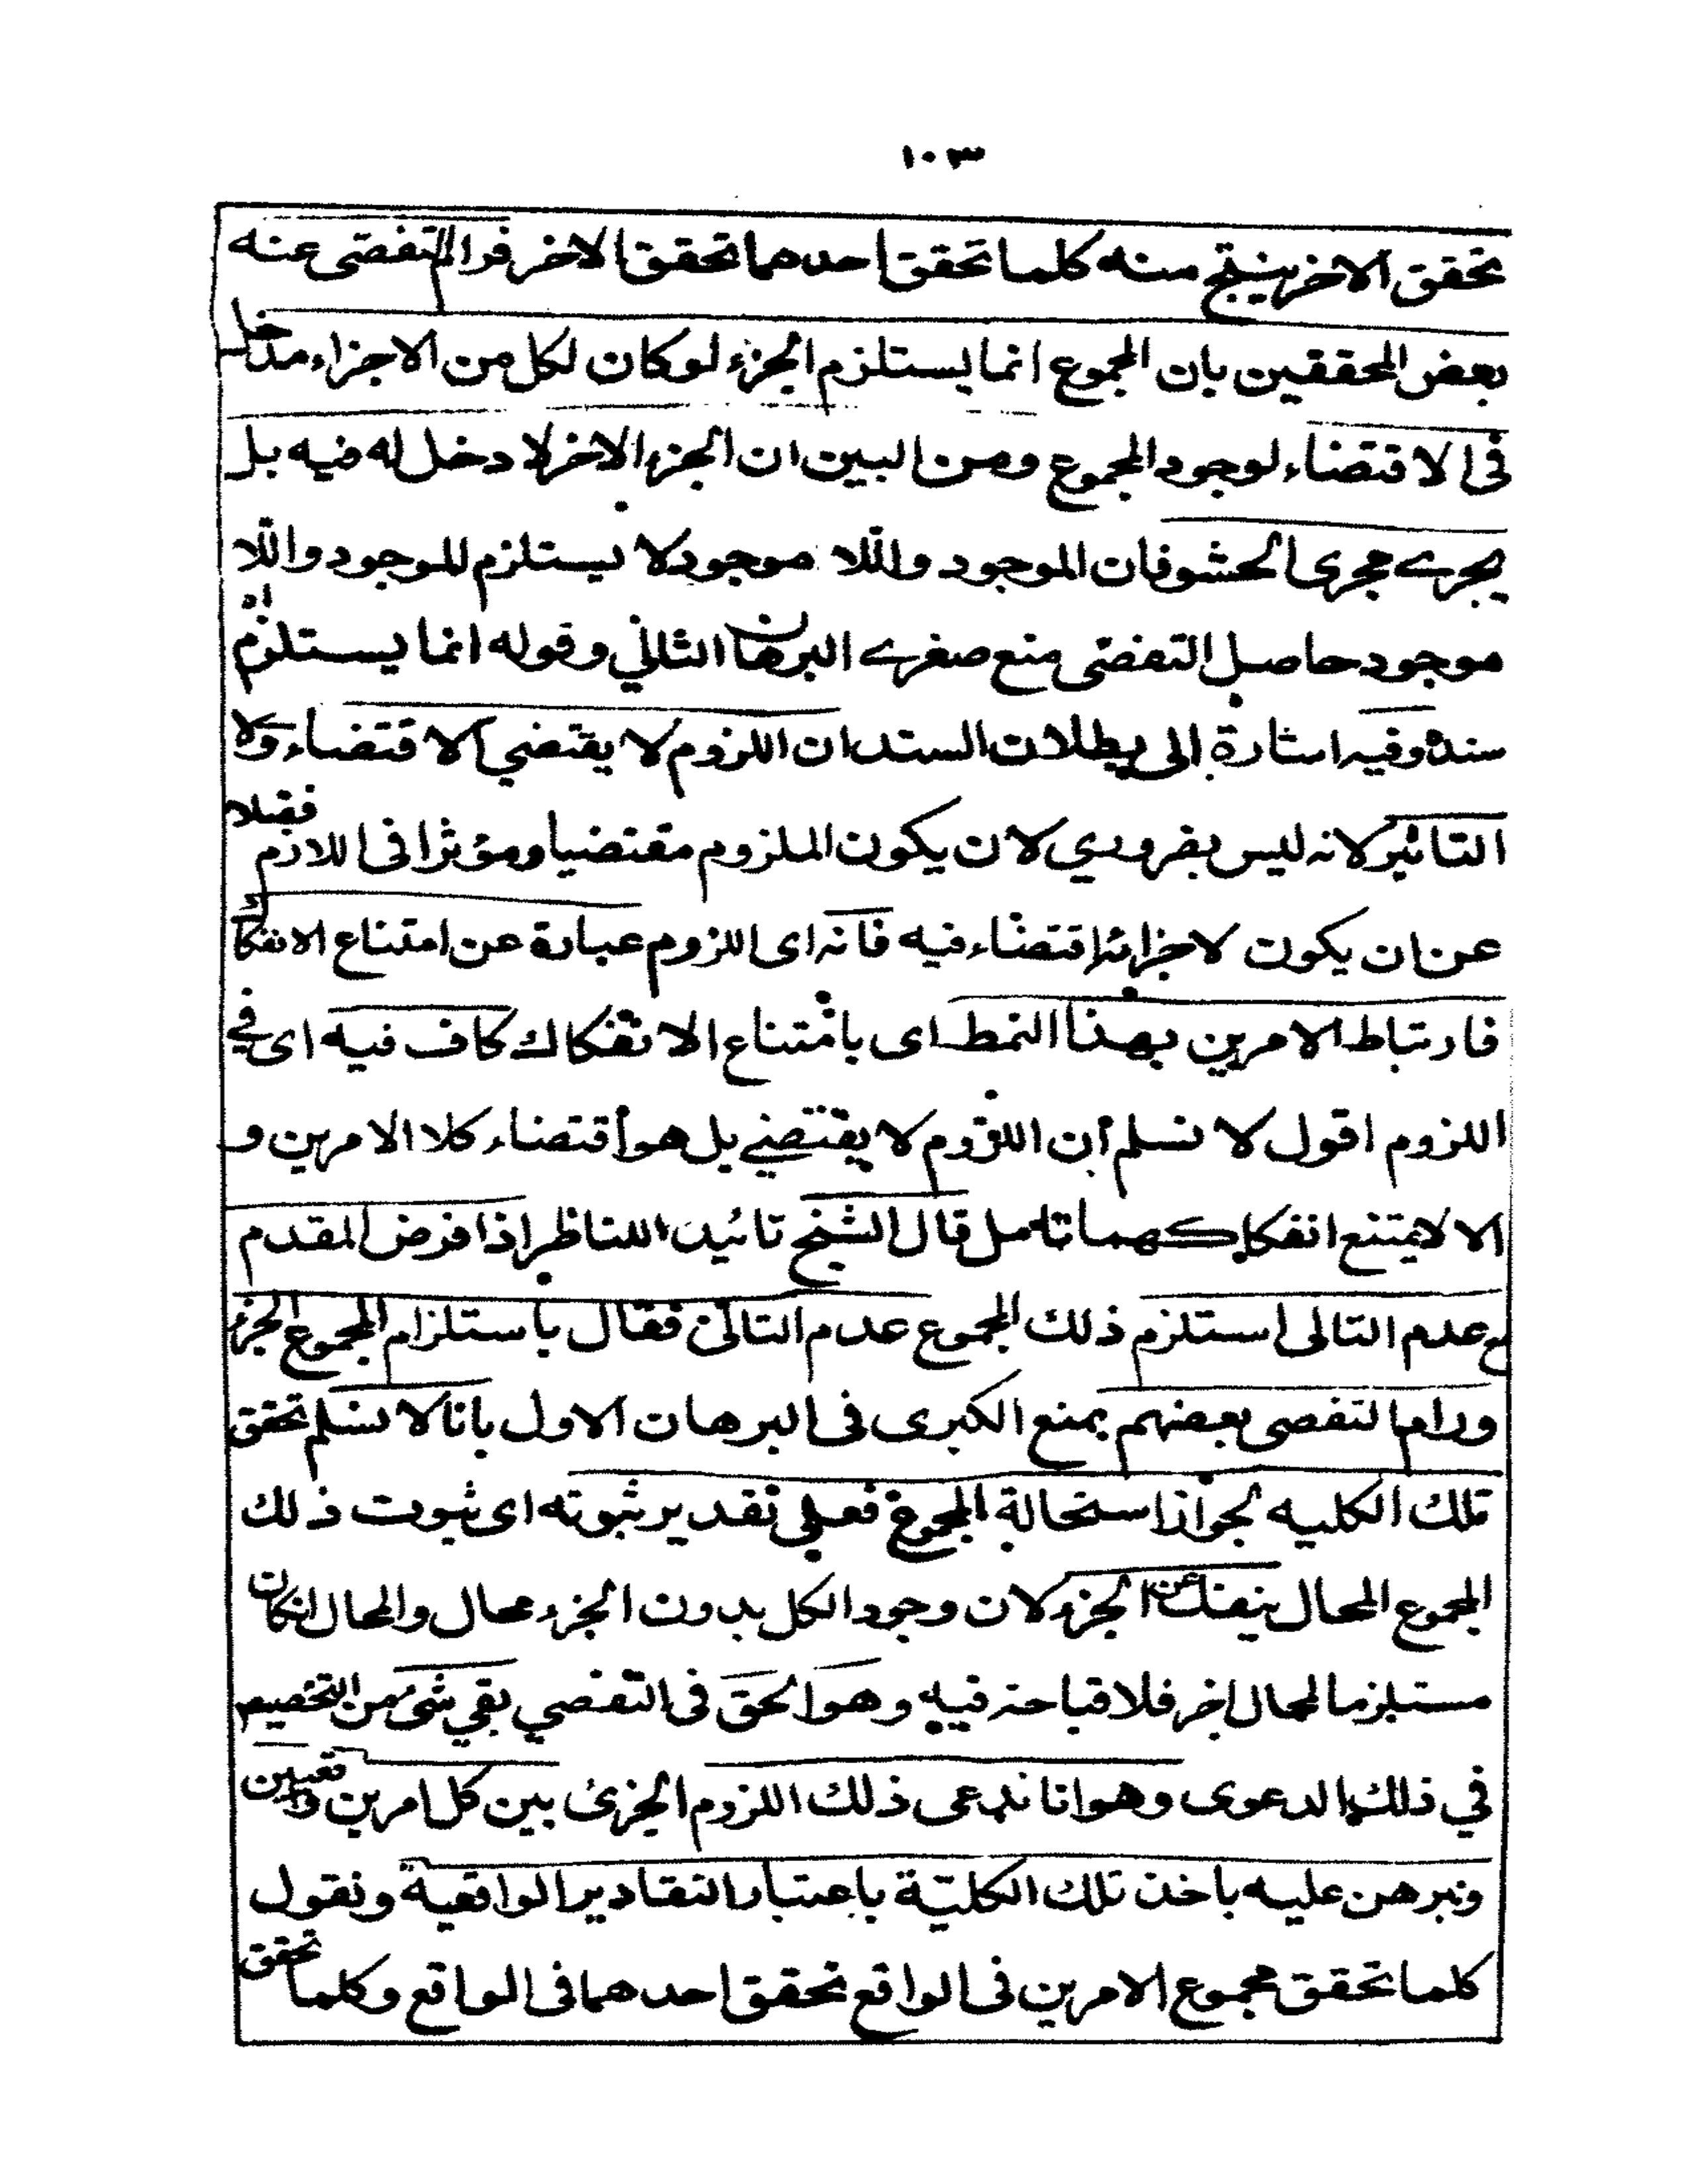 ١٠٣
تحقق الاخر ينتج منه كلما تحقق احدهما تحقق الاخر فرام التفصى عنه
بعض المحققين بان المجموع انما يستلزم الجزء لو كان لكل من الاجزاء مدخل
فى الاقتضاء لوجود المجموع ومن البين ان الجزء الاخر لا دخل له فيه بل
يجرے مجرى الحشو فان الموجود واللا موجود لا يستلزم للموجود واللا
موجود حاصل التفصى منع صغرے البرهان الثاني وقوله انما يستلزم اه
سنده وفيه اشارة الى بطلان السند ان اللزوم لا يقتضي الاقتضاء ولا
التاثير لانه ليس بضروري لان يكون الملزوم مقتضيا ومؤثرا فى اللازم فضلا
عن ان يكون لاجزائه اقتضاء فيه فانه اى اللزوم عبارة عن امتناع الانفكاك
فارتباط الامرين بهذا النمط اى بامتناع الانفكاك كاف فيه اى في
اللزوم اقول لا نسلم ان اللزوم لا يقتضي بل هو اقتضاء كلا الامرين و
الا لا يمتنع انفكاكهما تامل قال الشيخ تائيدا للناظر اذا فرض المقدم
مع عدم التالى استلزم ذلك المجموع عدم التالى فقال باستلزام المجموع الجزء
ورام التفصى بعضهم بمنع الكبرى فى البرهان الاول بانا لا نسلم تحقق
تلك الكليه لجواز استحالة المجموع فعلى تقدير ثبوته اى ثبوت ذلك
المجموع المحال ينفك عن الجزء لان وجود الكل بدون الجزء محال والمحال ان كان
مستلزما لمحال اخر فلا قباحة فيه وهو الحق فى التفصي بقي شئ من التخصيص
في ذلك الدعوى وهو انا ندعى ذلك اللزوم الجزئ بين كل امرين واقعيين
ونبرهن عليه باخذ تلك الكلية باعتبار التقادير الواقعية ونقول
كلما تحقق مجموع الامرين فى الواقع تحقق احدهما فى الواقع وكلما تحقق